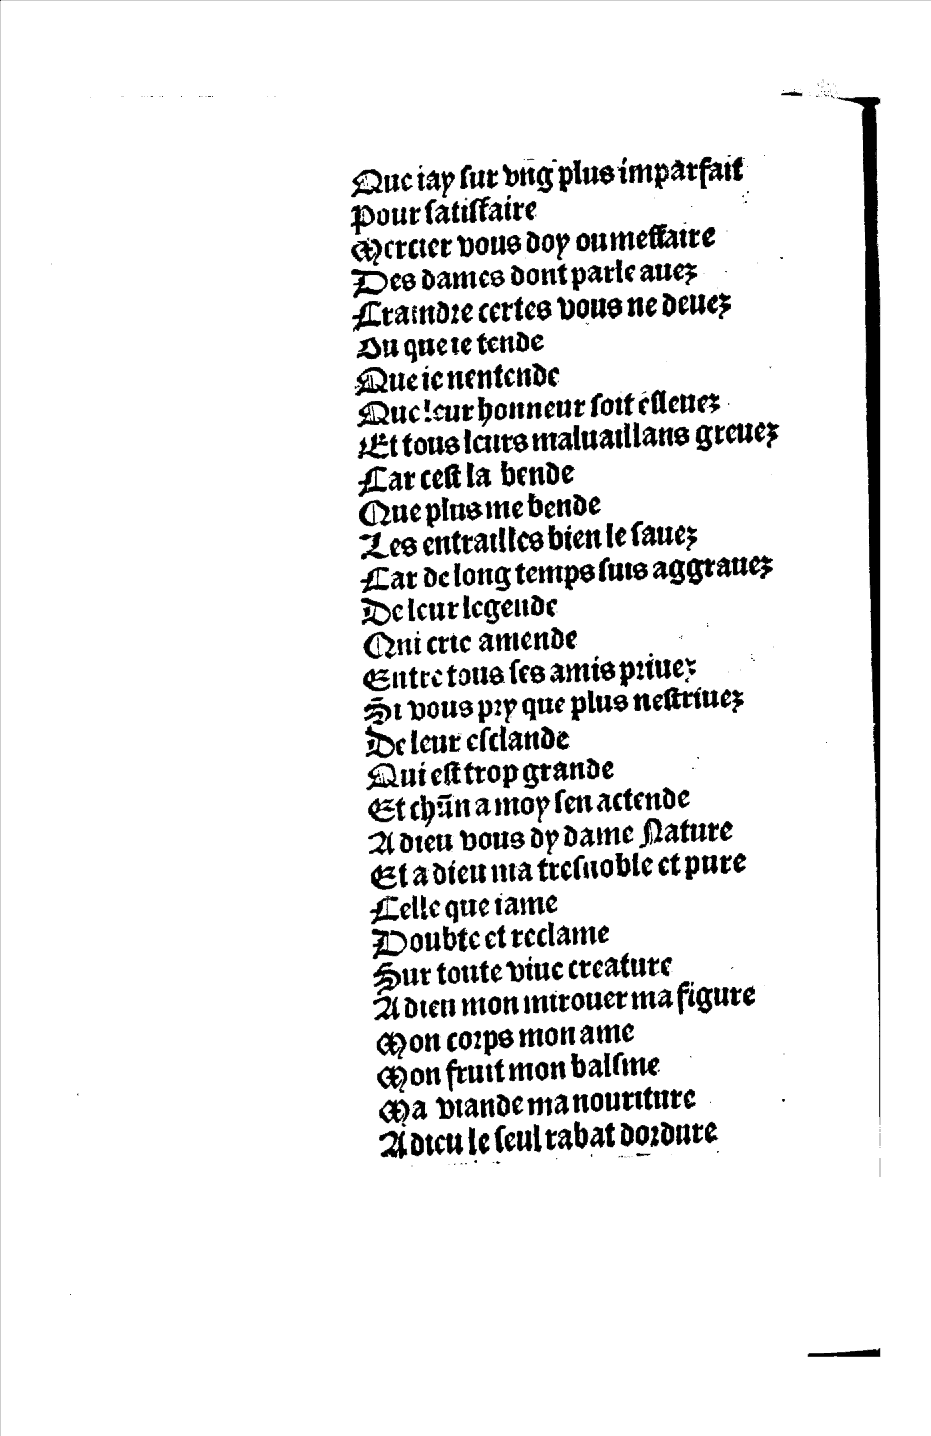 Que iay sur vng plus imparfait
Pour satisfaire
Mercier vous doy ou meffaire
Des dames dont parle auez
Craindre certes vous ne deuez
Ou que ie tende
Que ie nentende
Que leur honneur soit esleuez
Et tous leurs maluaillans greuez
Car cest la bende
Que plus me bende
Les entrailles bien le sauez
Car de long temps suis aggrauez
De leur legende
Qui crie amende
Entre tous ses amis priuez
Si vous pry que plus nestriuez
De leur esclande
Qui est trop grande
Et chūn a moy sen actende
A dieu vous dy dame Nature
Et a dieu ma tresnoble et pure
Celle que iame
Doubte et reclame
Sur toute viue creature
A dieu mon mirouer ma figure
Mon corps mon ame
Mon fruit mon balsme
Ma viande ma nouriture
A dieu le seul rabat dordure